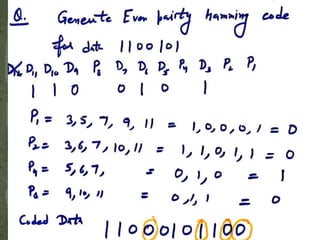 Q. Generate Even pairty hamming code
for data 1100101
D11 D10 D9 P8 D7 D6 D5 P4 D3 P2 P1
1 1 0 0 1 0 1
P1 = 3,5,7,9,11 = 1,0,0,0,1 = 0
P2 = 3,6,7,10,11 = 1,1,0,1,1 = 0
P4 = 5,6,7, = 0,1,0 = 1
P8 = 9,10,11 = 0,1,1 = 0
Coded Data 11000101100